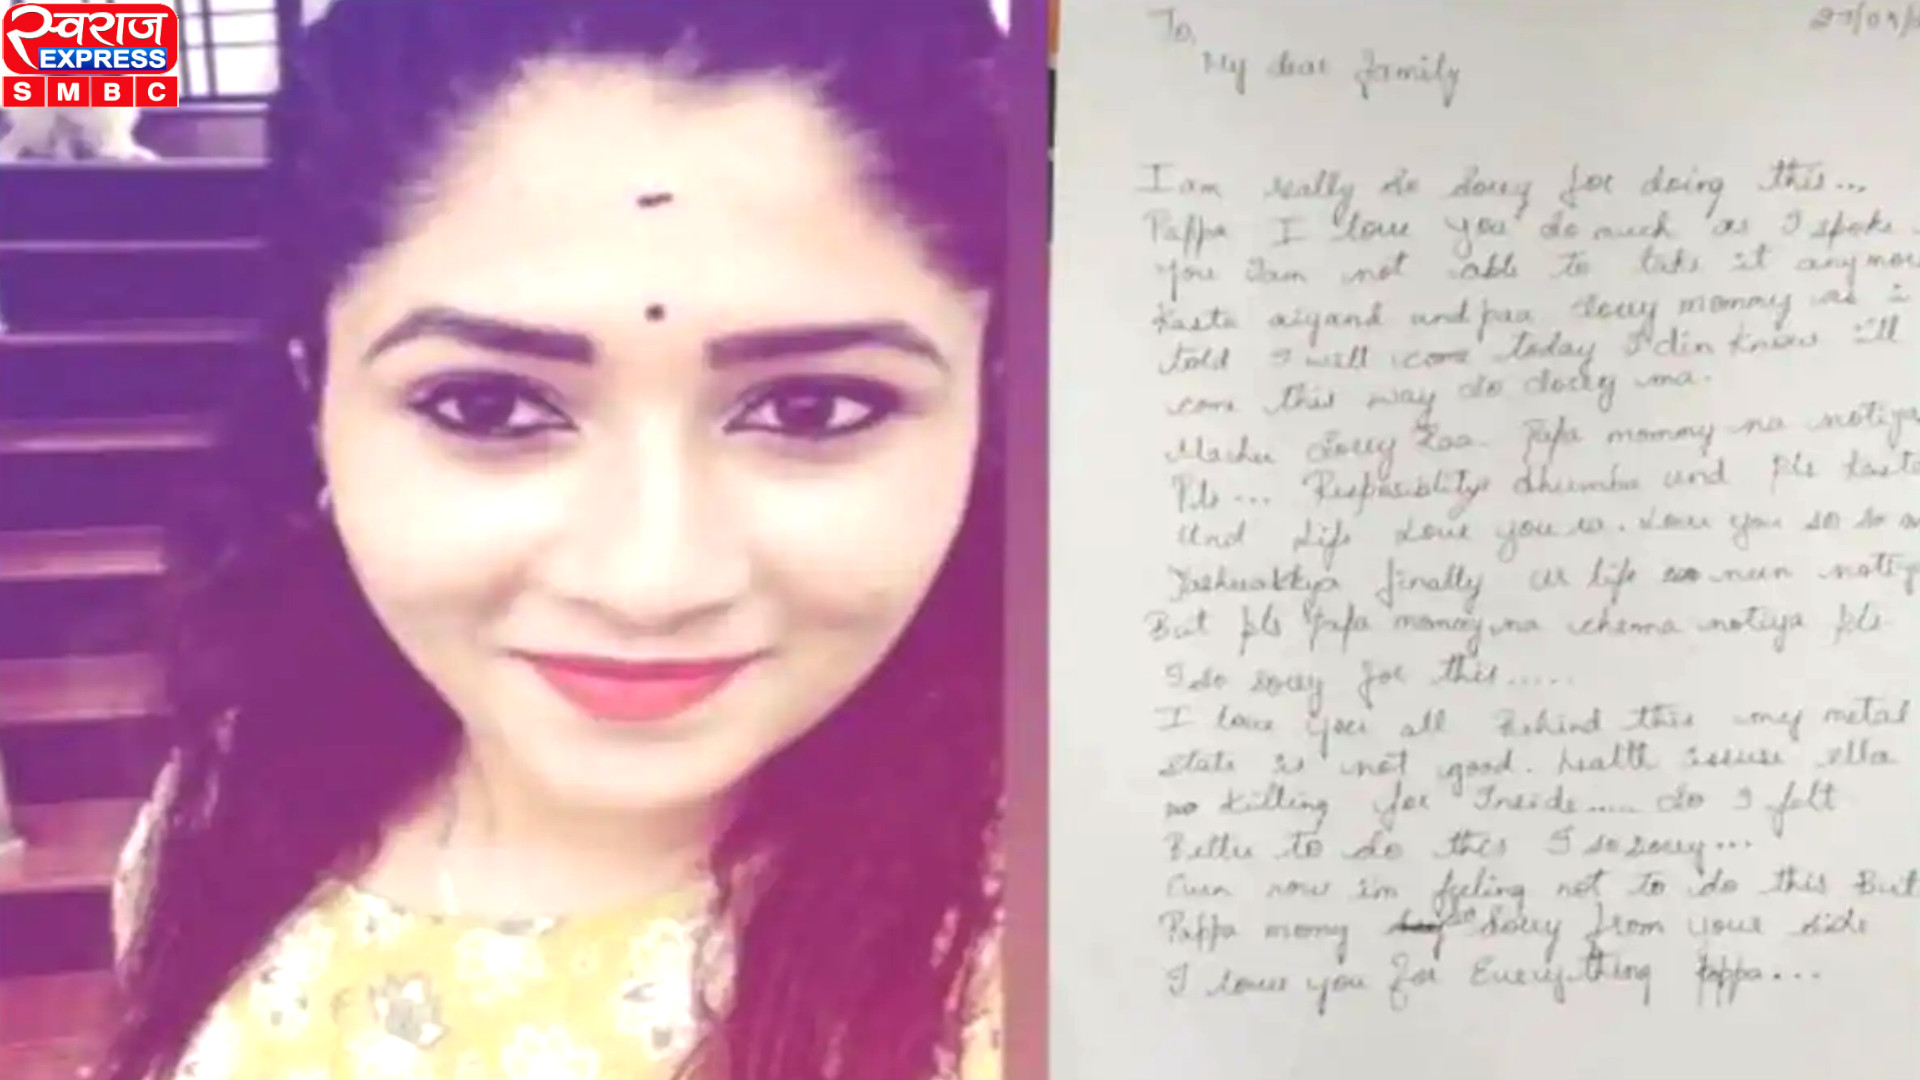 स्वराज
EXPRESS
S M B C
To,
My dear family
I am really so sorry for doing this...
Pappa I love you so much as I spoke
you I am not able to take it anymore
kasta aiyand und paa sorry mommy as i
told I will come today I din know I'll
come this way so sorry ma.
sorry Kaa. Papa mommy na notiya
Pls... und pls kasta
Und life Love you so so
finally as life nun notiya
But pls papa mommy na notiya pls
I so sorry for this.....
I love you all Behind this my metal
state is not good. health issuse ella
so killing for Inside..... So I felt
Better to do this I so sorry...
now im feeling not to do this But
Pappa momy so sorry from your side
I love you for Everything pappa...